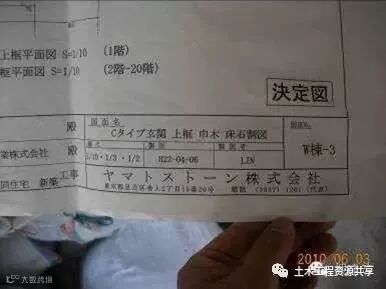 上框平面図 S=1/10 (1階)
框平面図 S=1/10 (2階-20階)
決定図
図面名
殿
Cタイプ玄関 上框 巾木 床石割図
業株式会社 殿
1/10・1/3・1/2
H22-04-06
LIN
W棟-3
同住宅 新築 工事
ヤマトストーン株式会社
(代表)
2010 06 03
大数跨境
土木工程资源共享